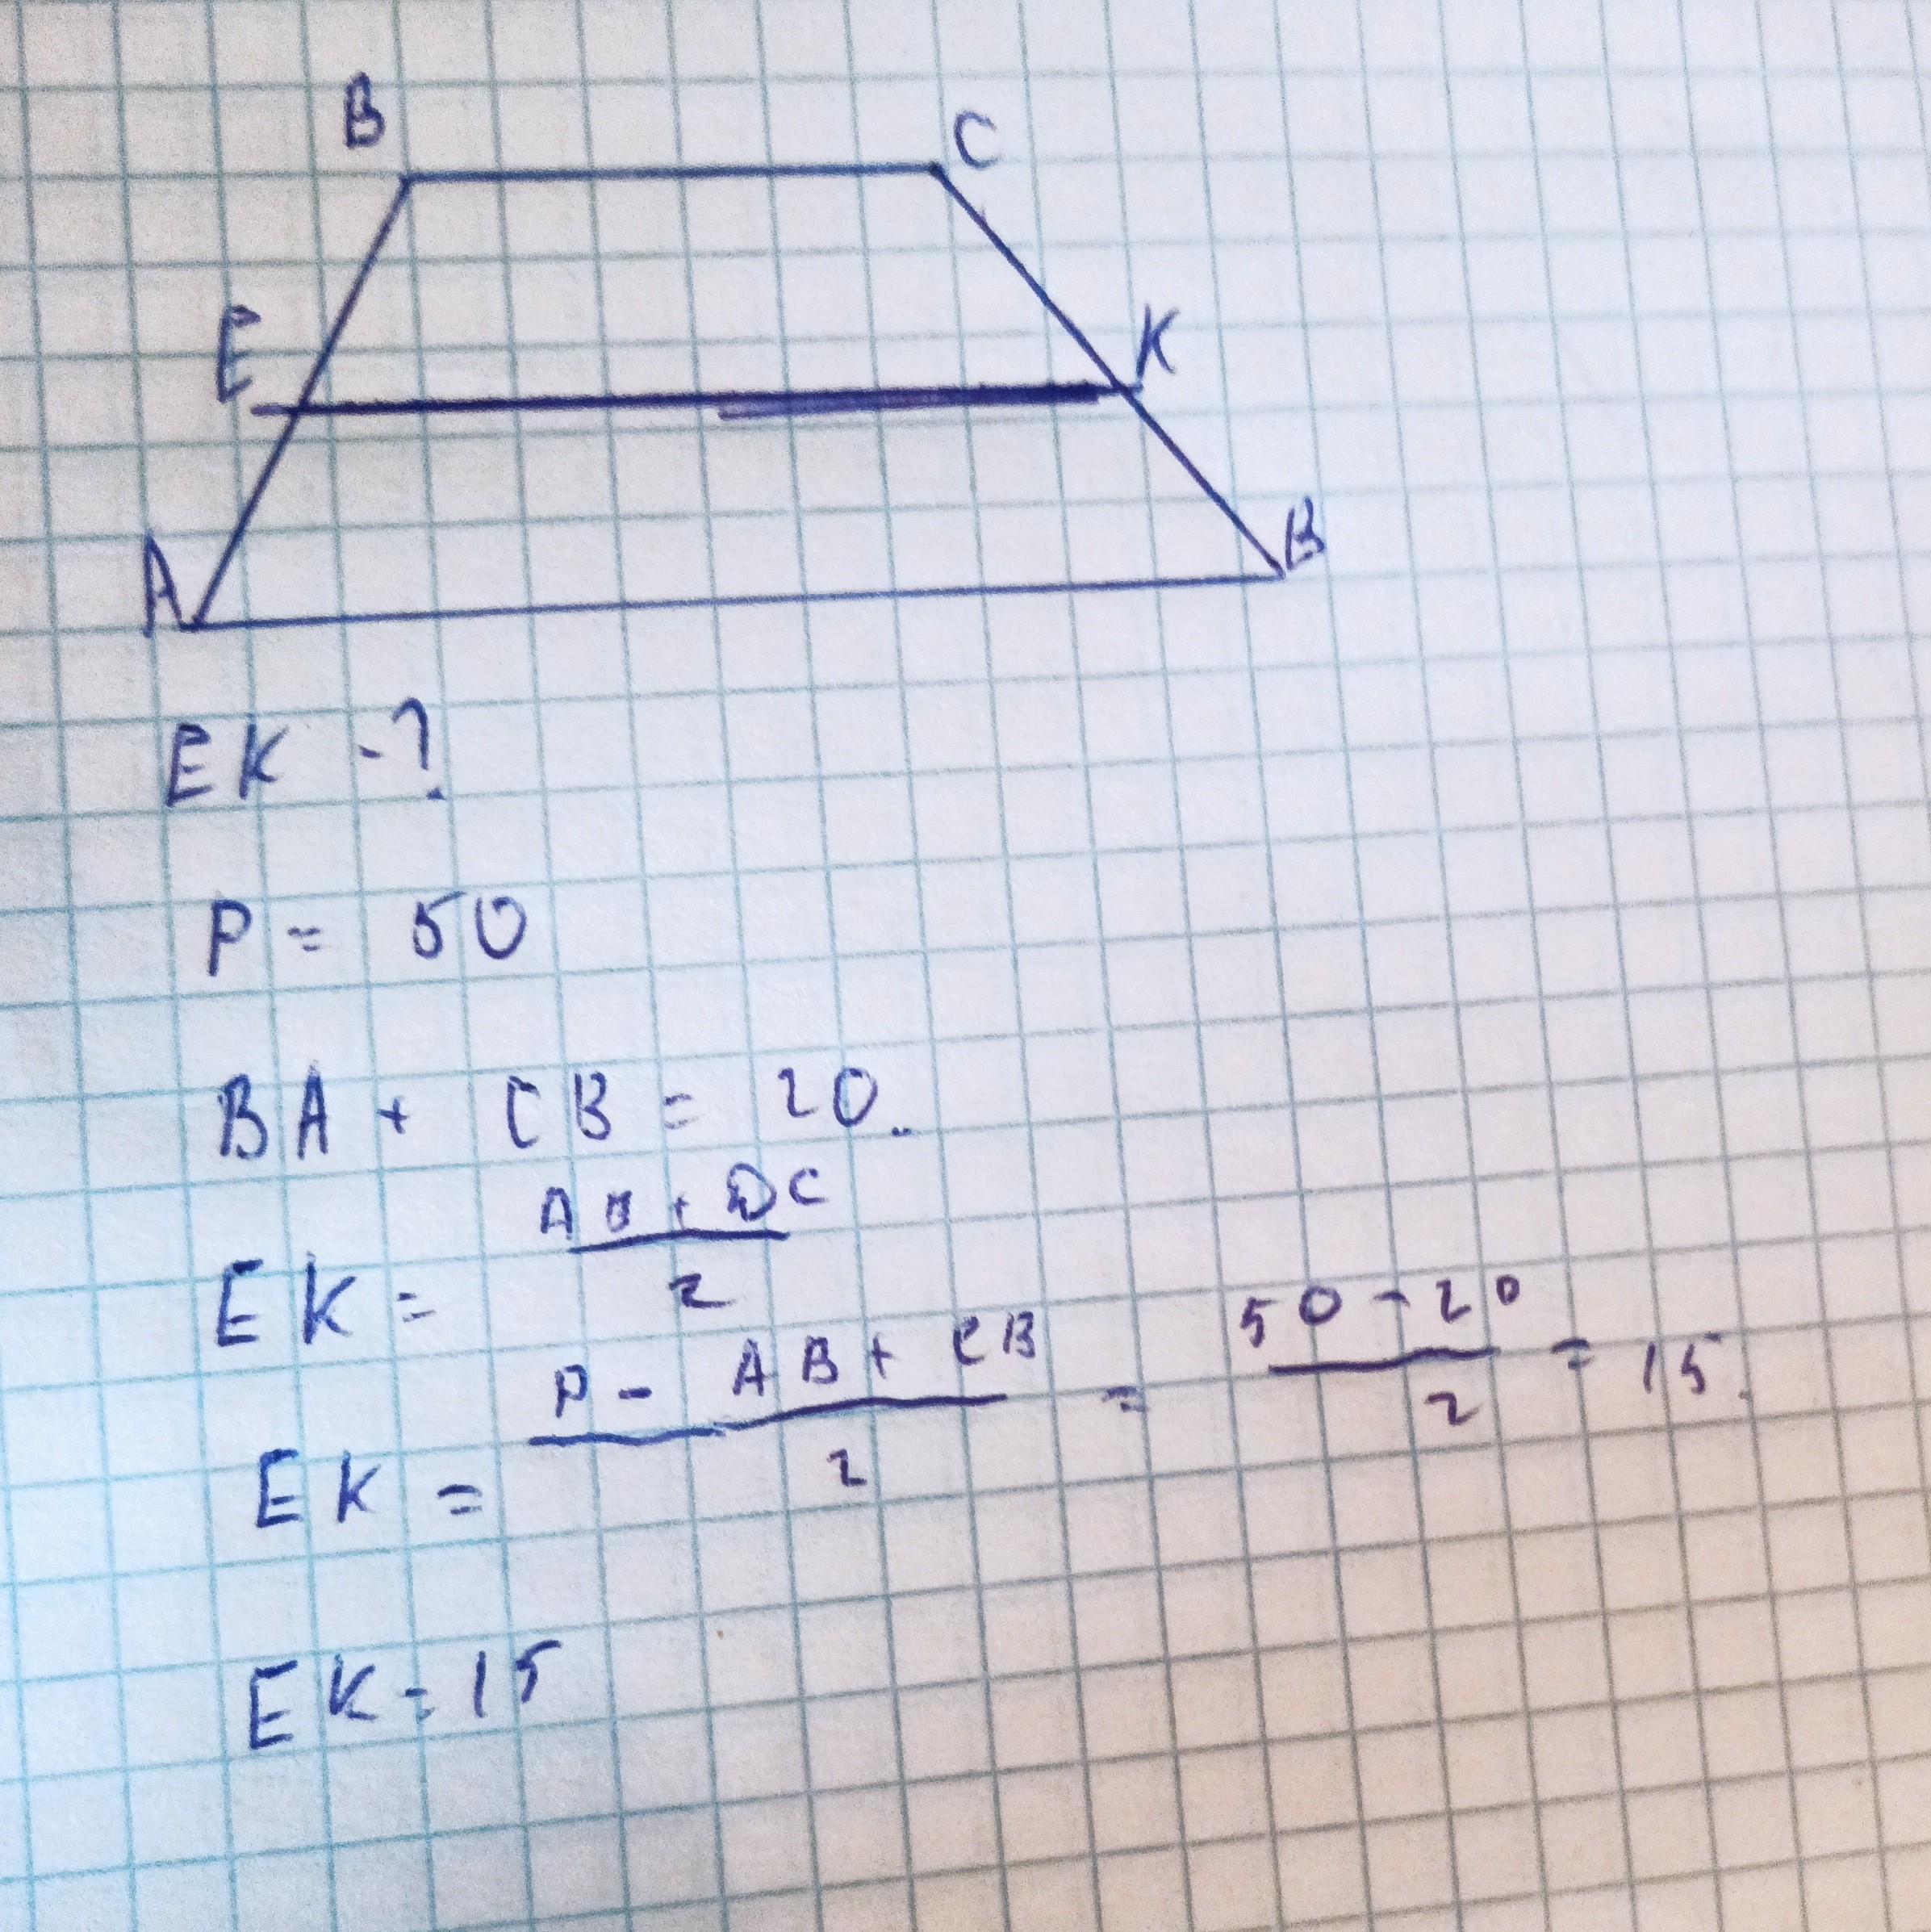 B
C
E
K
A
B
EK - ?
P = 50
BA + CB = 20.
EK = AB + DC / 2
EK = P - AB + CB / 2 = 50 - 20 / 2 = 15.
EK = 15